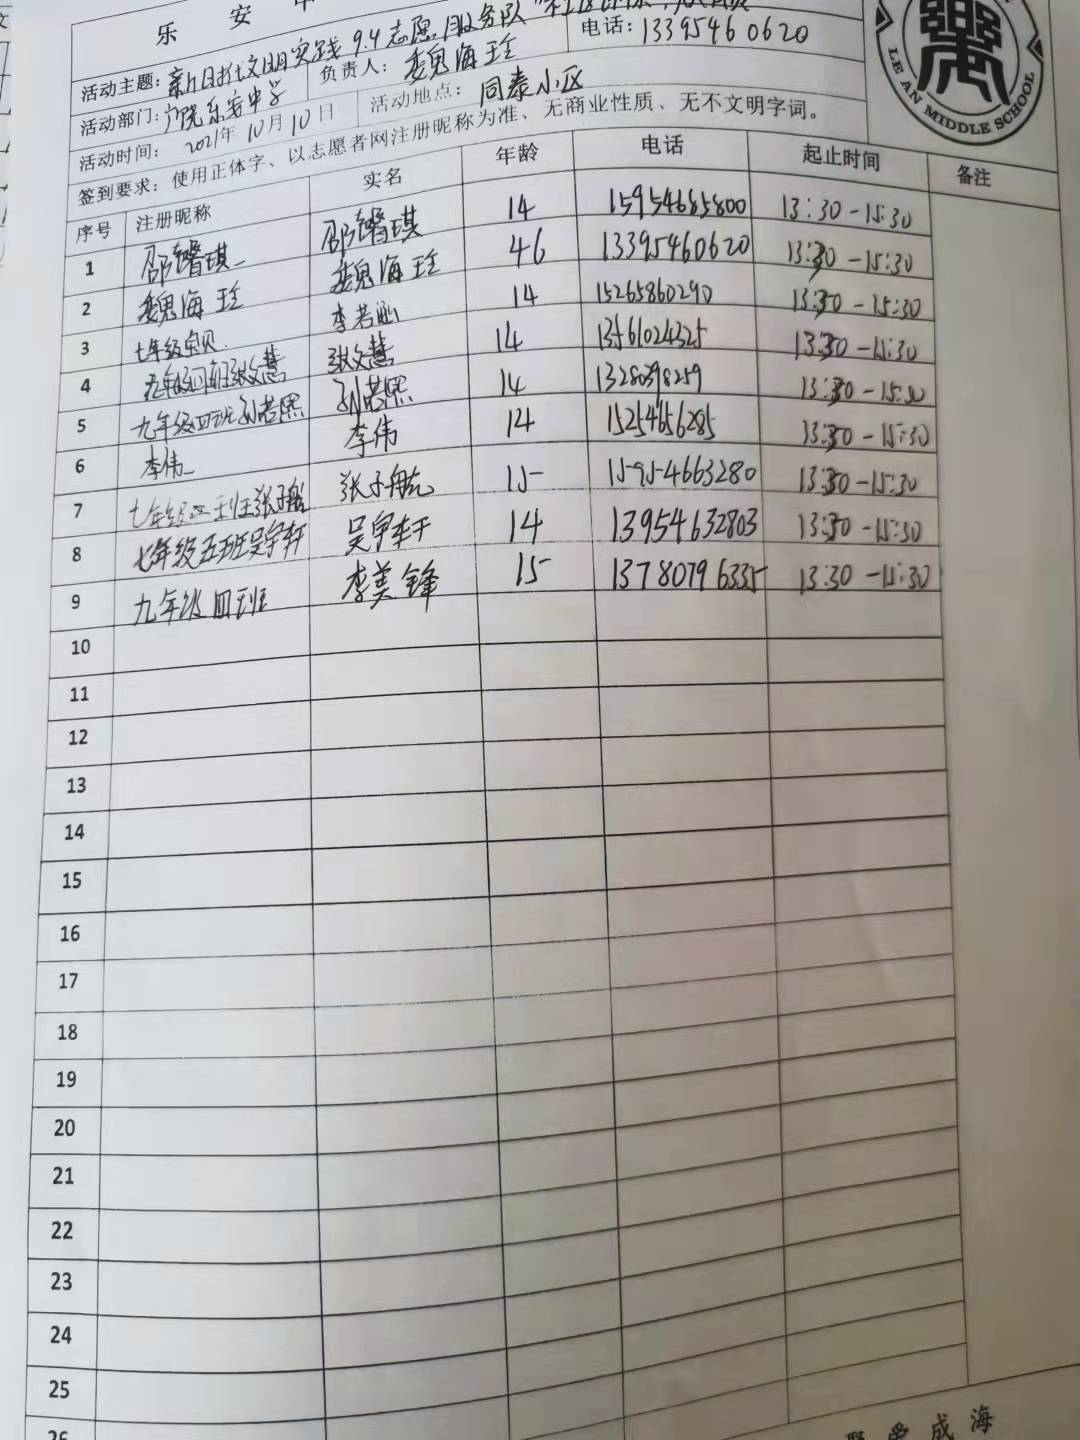 乐安中
活动主题：新时代文明实践9.4志愿服务队"社区
活动部门：广饶乐安中学 负责人：魏海珍 电话：13395460620
活动时间：2021年10月10日 活动地点：同泰小区
签到要求：使用正体字、以志愿者网注册昵称为准、无商业性质、无不文明字词。
序号 注册昵称 实名 年龄 电话 起止时间 备注
1 邵馨琪 邵馨琪 14 15954685800 13:30-15:30
2 魏海珍 魏海珍 46 13395460620 13:30-15:30
3 七年级 李若彤 14 15265860290 13:30-15:30
4 九年级四班张文慧 张文慧 14 13561024325 13:30-15:30
5 九年级四班孙若熙 孙若熙 14 13280398259 13:30-15:30
6 李伟 李伟 14 15254656285 13:30-15:30
7 七年级五班张子航 张子航 15 15954663280 13:30-15:30
8 七年级五班吴宇轩 吴宇轩 14 13954632803 13:30-15:30
9 九年级四班 李美锋 15 13780796335 13:30-15:30
10
11
12
13
14
15
16
17
18
19
20
21
22
23
24
25
26
LE AN MIDDLE SCHOOL
聚爱成海